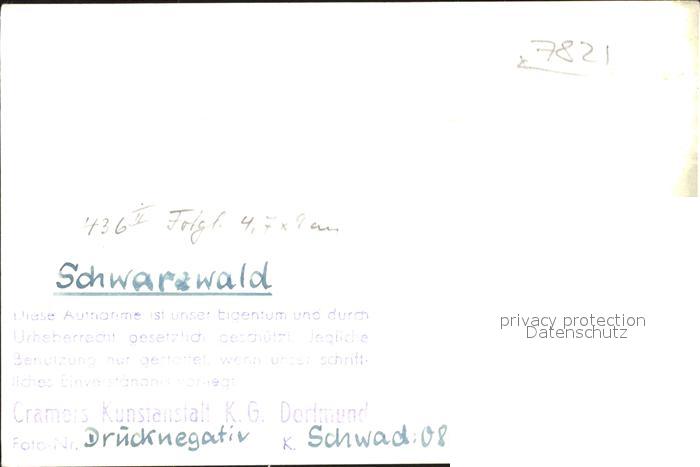 7821
436 II Fotgl. 4,7 x 9 cm
Schwarzwald
Diese Aufnahme ist unser Eigentum und durch
Urheberrecht gesetzlich geschützt. Jegliche
Benutzung nur gestattet, wenn unser schrift-
liches Einverständnis vorliegt
Cramers Kunstanstalt K.G. Dortmund
Foto-Nr. Drucknegativ K. Schwad: 08
privacy protection
Datenschutz